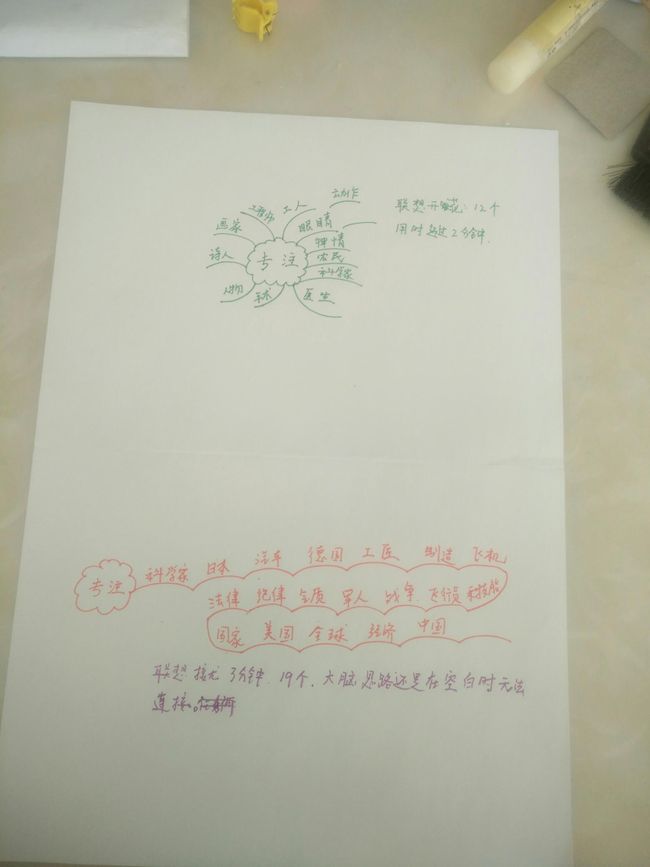 动作
工程师 工人
画家
眼睛
诗人
神情
农民
科学家
专注
人物
医生
联想开花: 12个
用时超过2分钟.
专注
科学家 日本 汽车 德国 工匠 制造 飞机
法律 纪律 军人 战争 飞行员
国家 美国 全球 经济 中国
联想接龙 3分钟. 19个. 大脑思路还是在空白时无法
连接。